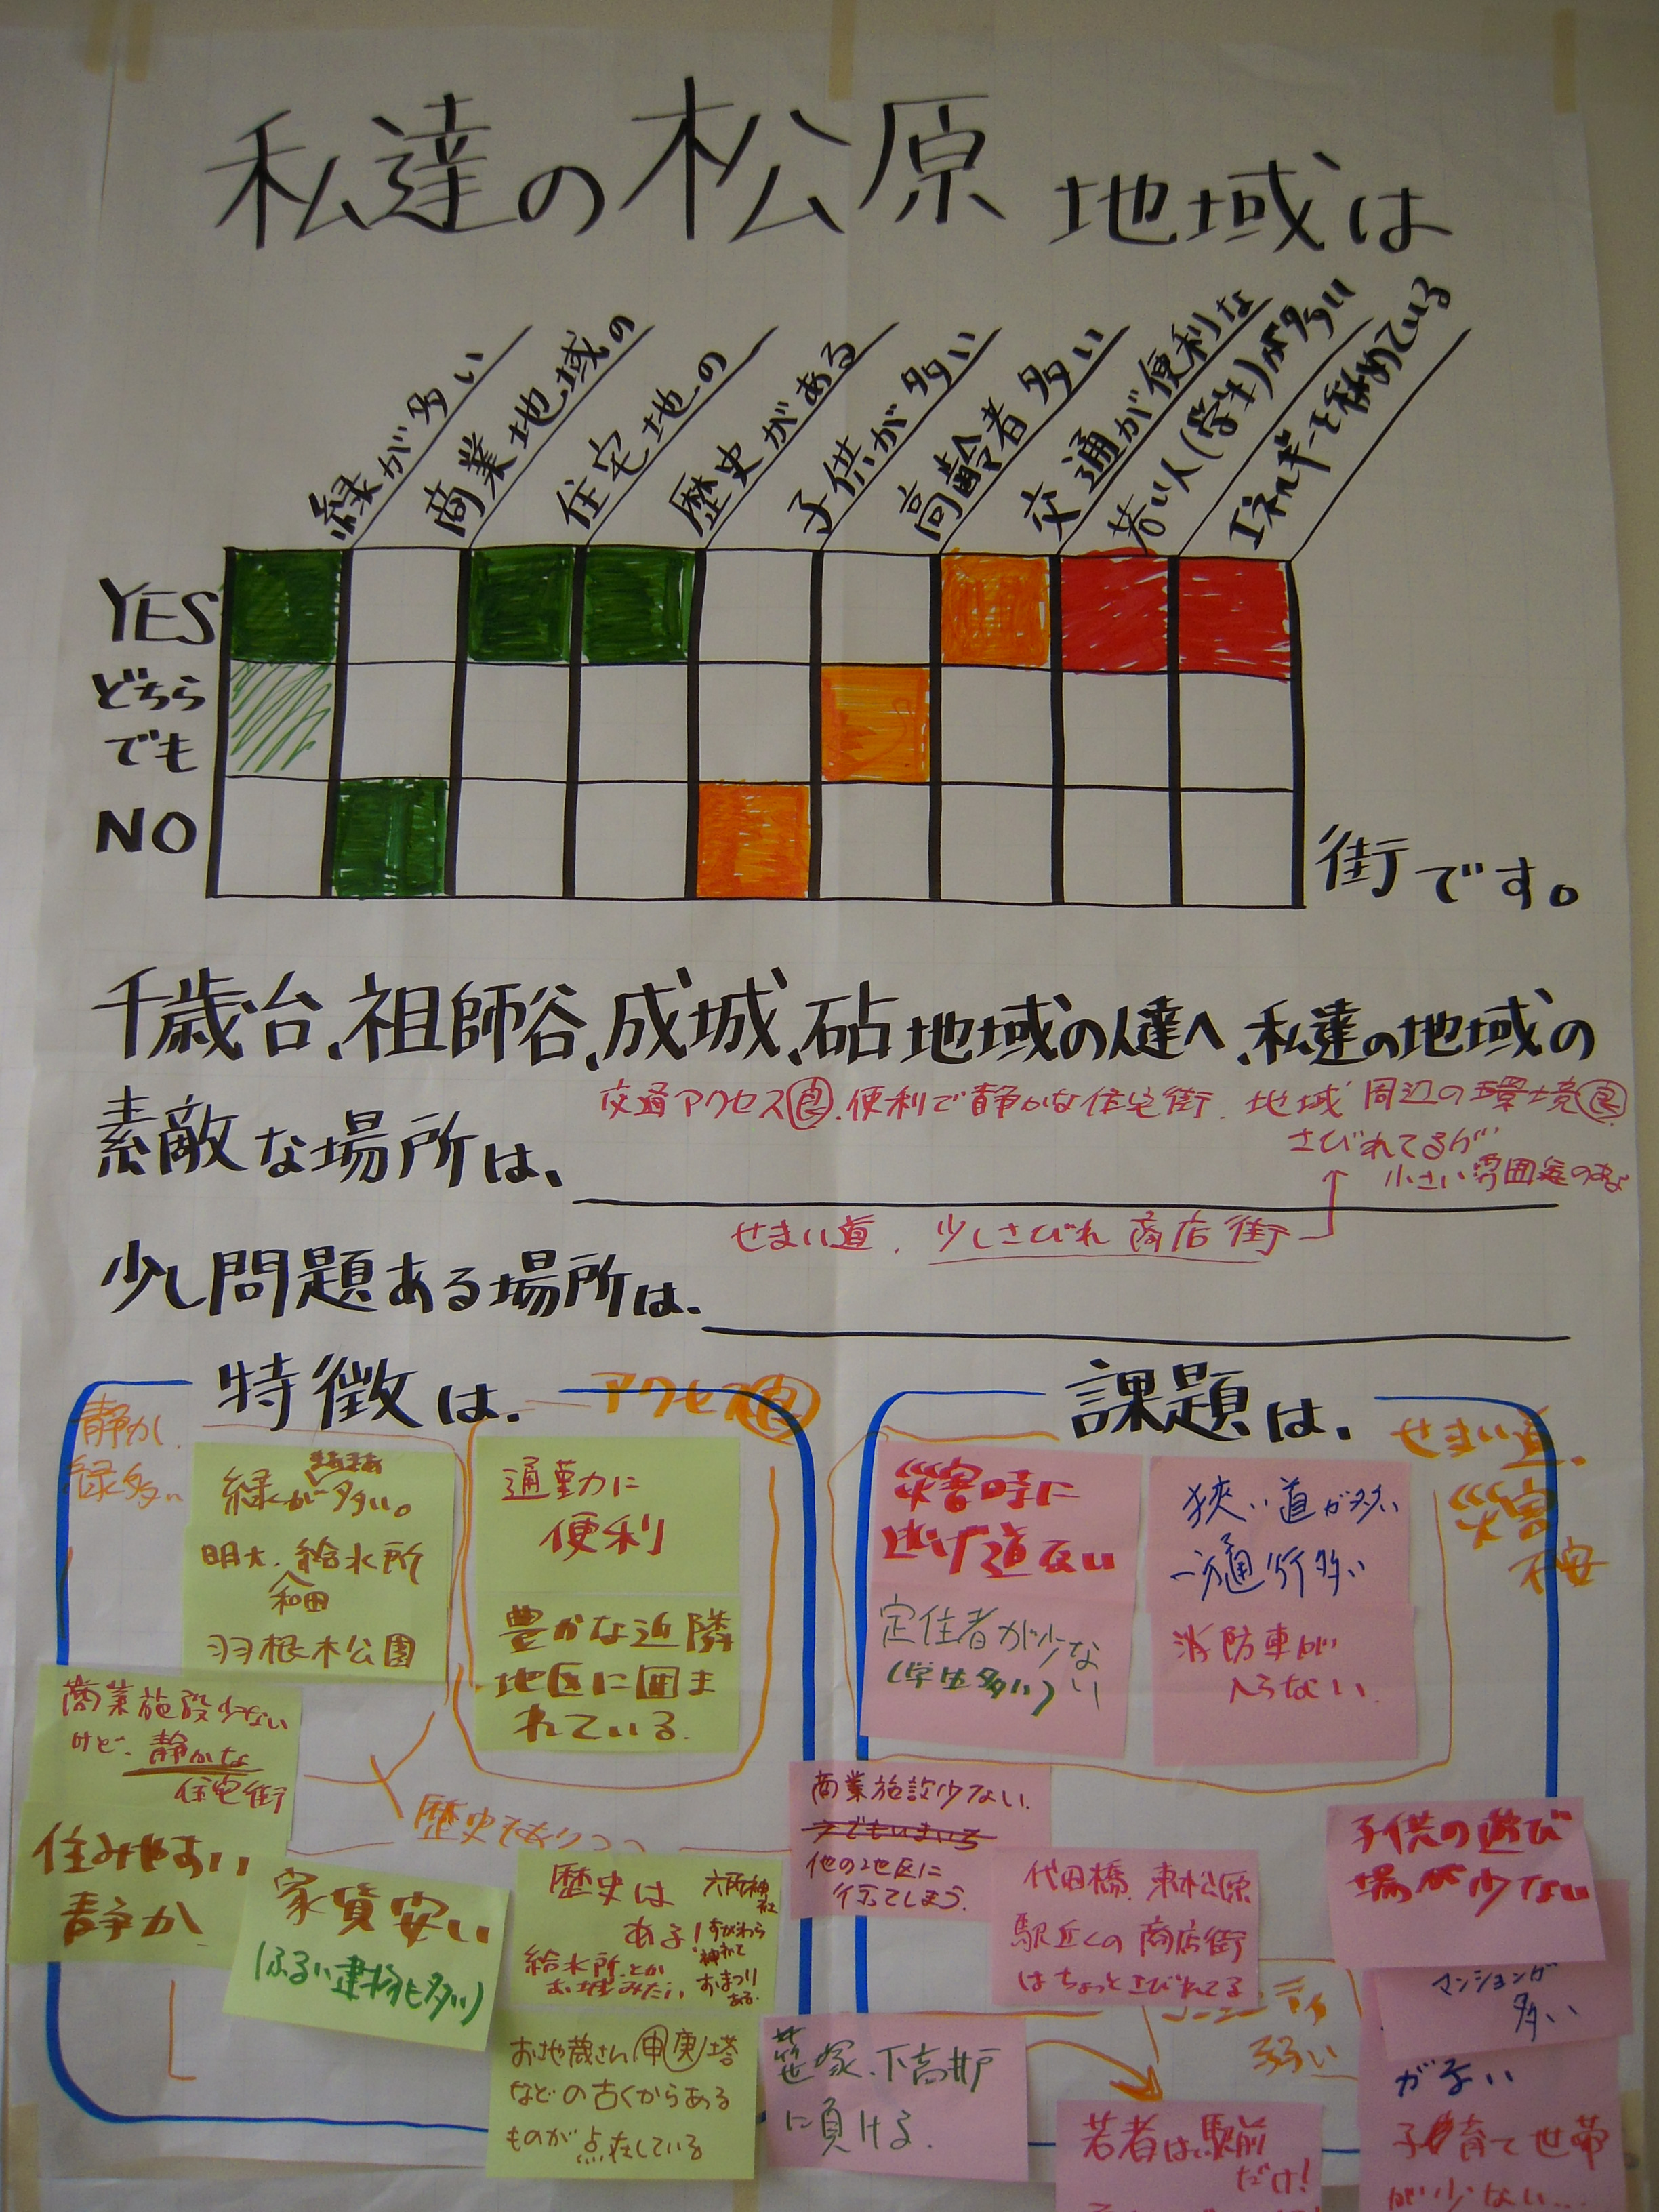 私達の松原地域は
緑が多い
商業地域の
住宅地の
歴史がある
子供が多い
高齢者多い
交通が便利な
若い人(学生)が多い
エネルギーを秘めている
YES
どちら
でも
NO
街です。
千歳台、祖師谷、成城、砧地域の人達へ、私達の地域の
交通アクセス良、便利で静かな住宅街、地域周辺の環境良
素敵な場所は、
さびれてるが
小さい雰囲気のある
せまい道、少しさびれ商店街
少し問題ある場所は、
特徴は、
アクセス良
静か、
緑多い
まあまあ
緑が多い。
明大、給水所
和田
羽根木公園
通勤に
便利
豊かな近隣
地区に囲ま
れている。
商業施設少ない
けど、静かな
住宅街
住みやすい
静か
歴史もありつつ
家賃安い
(ふるい建物も多い)
歴史は
ある!
給水所とか
お城みたい
六所神社
すがわら
神社で
おまつり
ある。
お地蔵さん 申庚塔
などの古くからある
ものが点在している
課題は、
せまい道、
災害
不安
災害時に
逃げ道ない
狭い道が多い
一方通行多い
定住者が少ない
(学生多い)
消防車が
入らない
商業施設少ない。
今でもいまいち
他の地区に
行ってしまう。
代田橋、東松原
駅近くの商店街
はちょっとさびれてる
子供の遊び
場が少ない
マンションが
多い
コミュニティ
弱い
笹塚、下高井戸
に負ける。
がない
子育て世帯
が少ない…
若者は駅前
だけ!